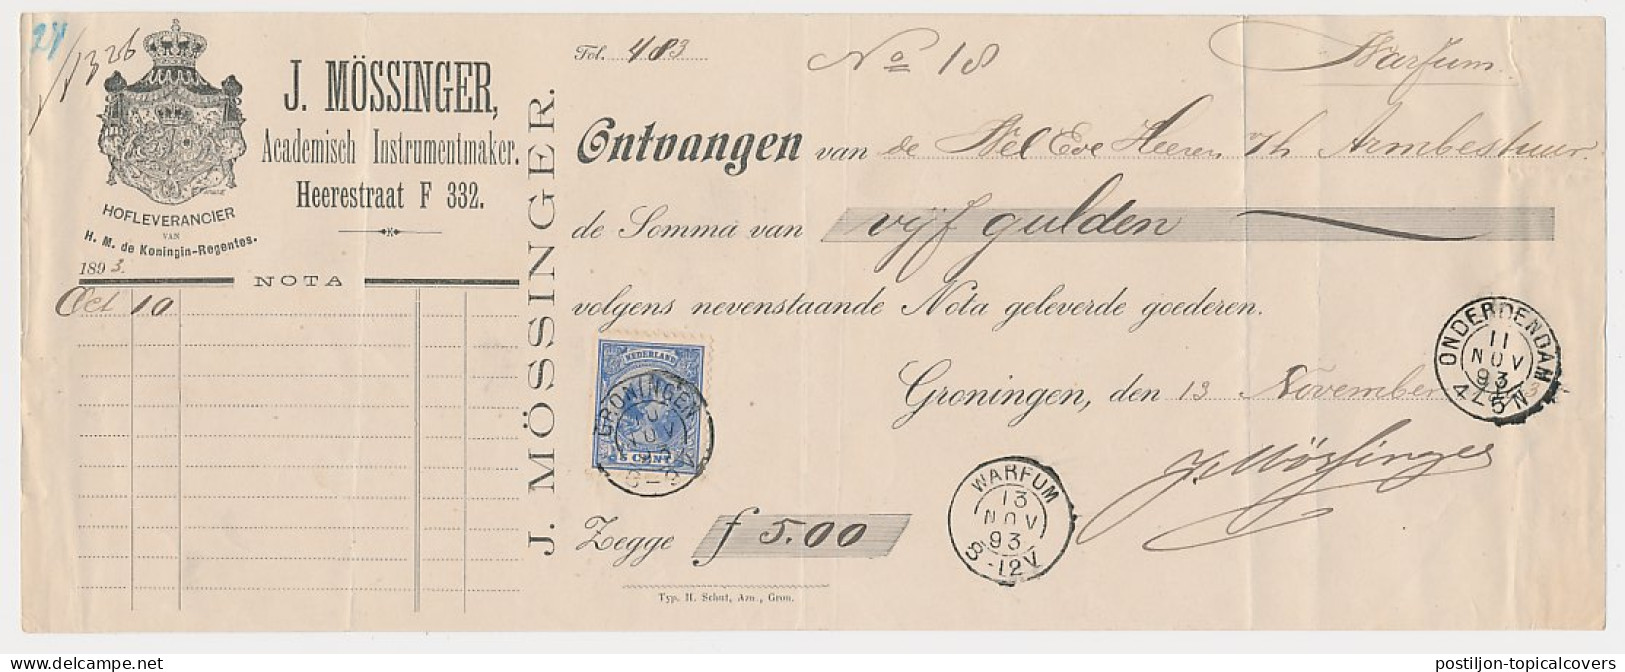 24
1326
J. MÖSSINGER,
Academisch Instrumentmaker.
Heerestraat F 332.
HOFLEVERANCIER
VAN
H. M. de Koningin-Regentes.
1893.
NOTA
Oct 10
J. MÖSSINGER. J. MÖSSINGER.
Fol. 483
No 18
Warfum
Ontvangen van de Wel Eve Heeren Armbestuur
de Somma van vijf gulden
volgens nevenstaande Nota geleverde goederen.
Groningen, den 13 November
J. Mössinger
NEDERLAND
5 CENT
GRONINGEN
NOV
93
ONDERDENDAM
11
NOV
93
4-5N
WARFUM
13
NOV
93
8-12V
Zegge f 5.00
Typ. H. Schut, Azn., Gron.
postiljon-topicalcovers
© www.delcampe.net